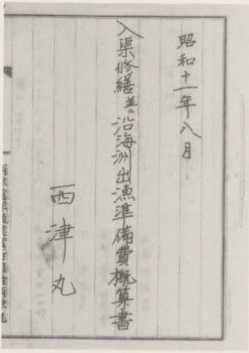 昭和十一年八月
入渠修繕並ニ沿海州出漁準備費概算書
西津丸